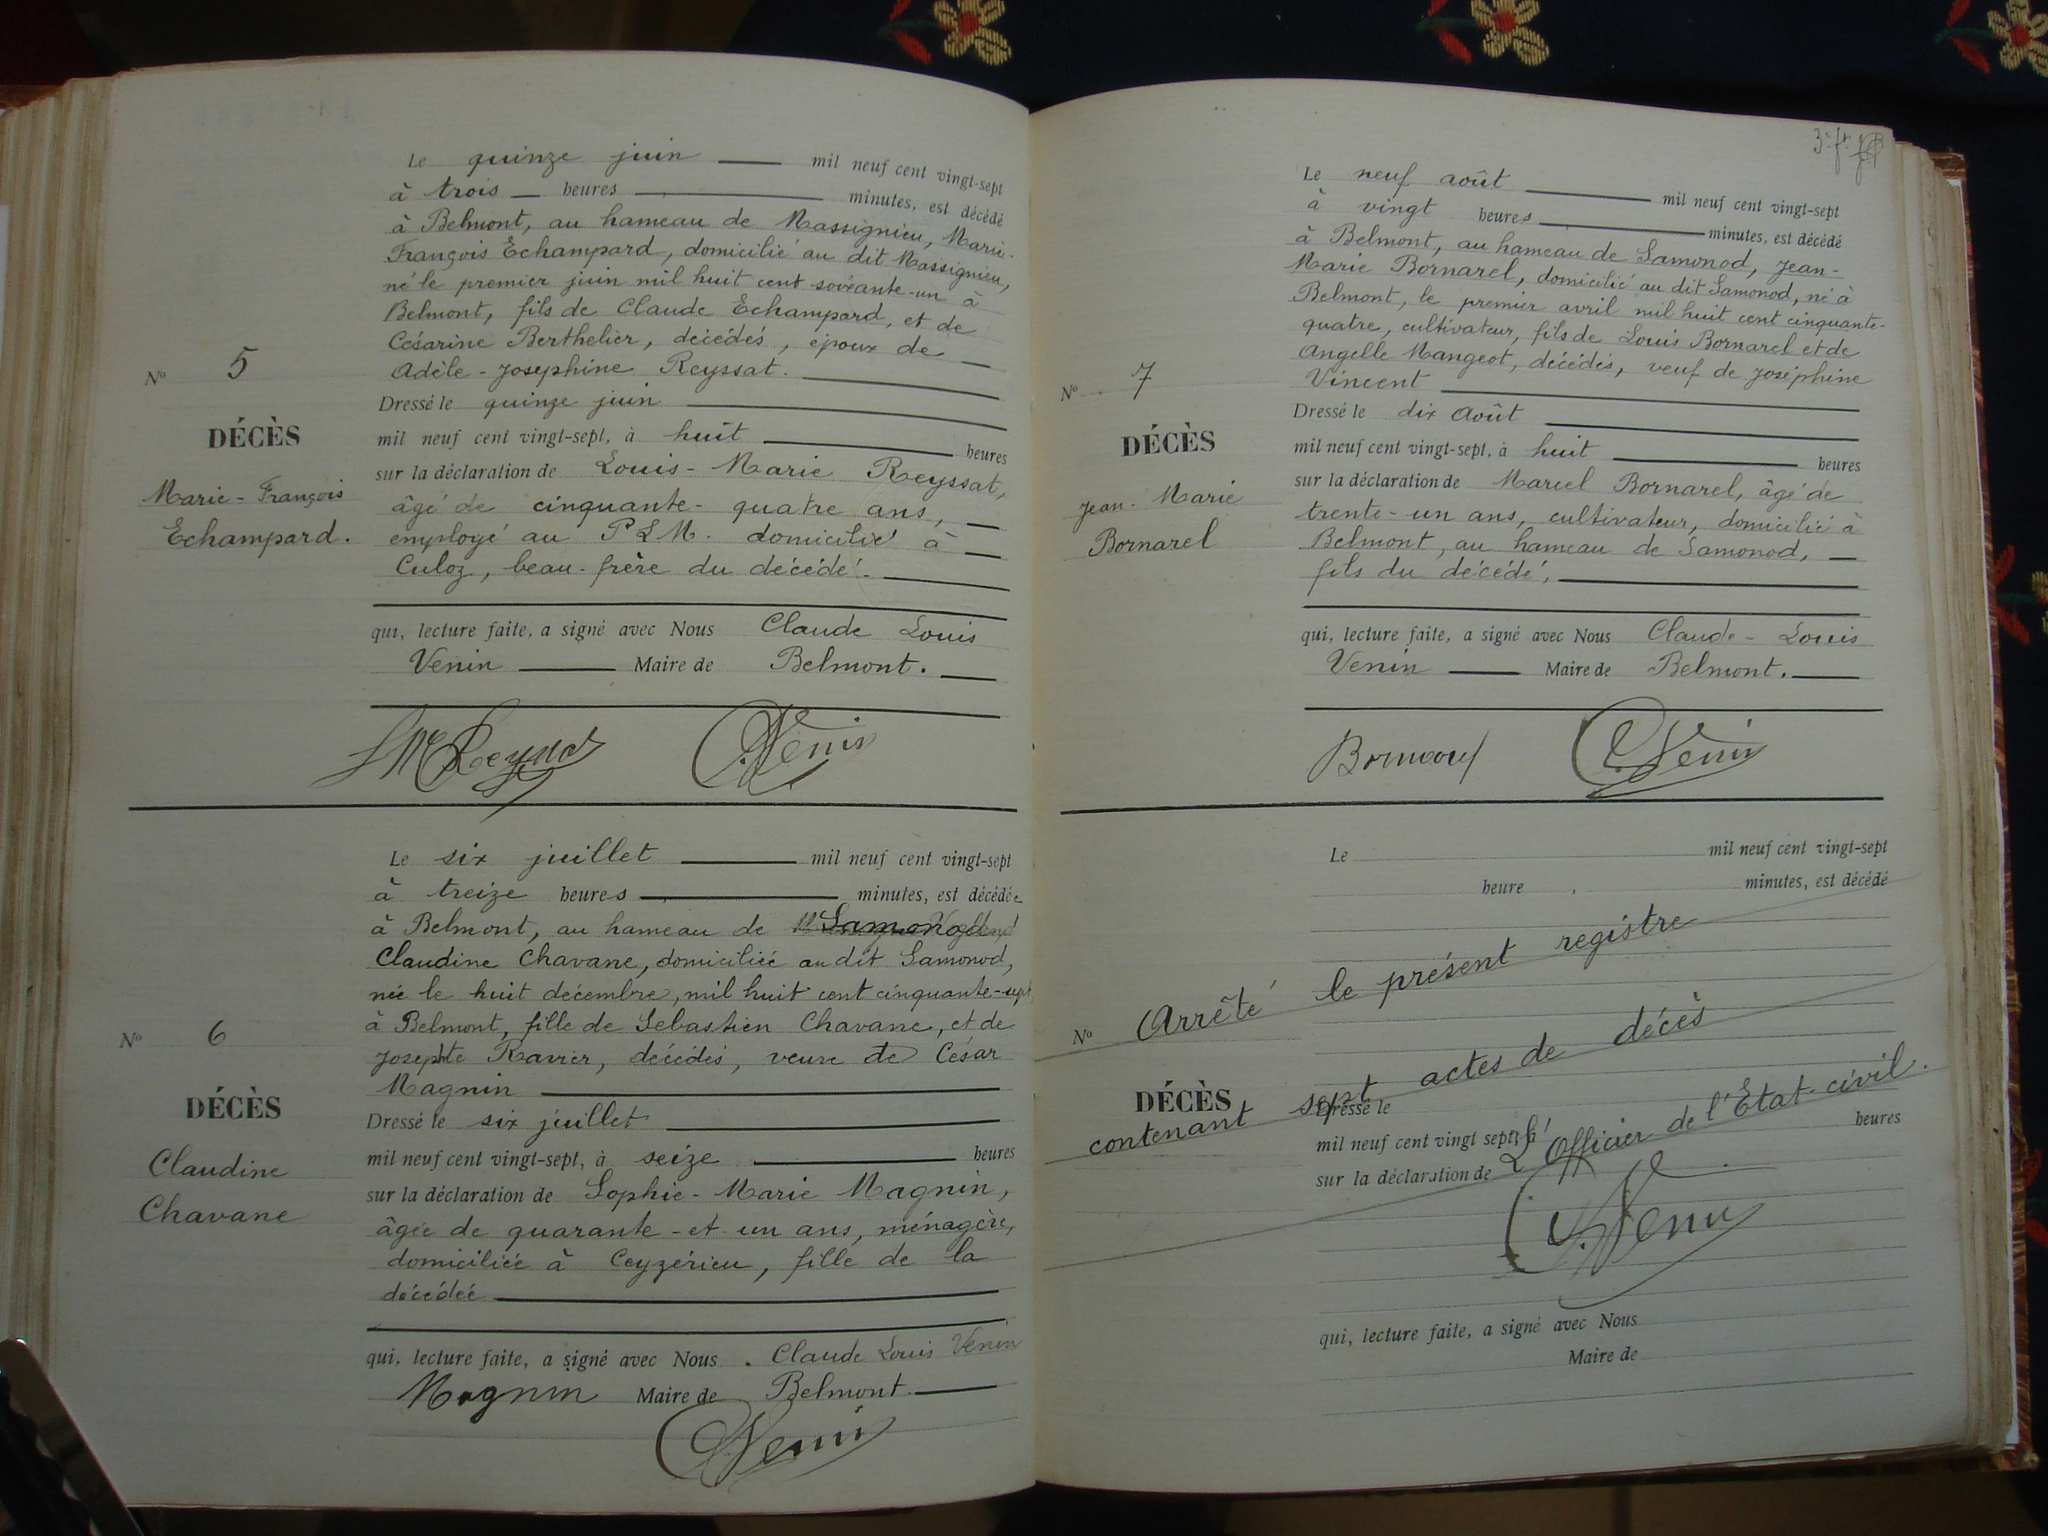 Le quinze juin mil neuf cent vingt-sept
à trois heures minutes, est décédé
à Belmont, au hameau de Massignieu, Marie-
François Echampard, domicilié au dit Massignieu,
né le premier juin mil huit cent soixante-un à
Belmont, fils de Claude Echampard, et de
Césarine Berthelier, décédés, époux de
Adèle-Josephine Reyssat.
Nº 5
DÉCÈS
Marie-François
Echampard.
Dressé le quinze juin
mil neuf cent vingt-sept, à huit heures
sur la déclaration de Louis-Marie Reyssat,
âgé de cinquante-quatre ans,
employé au P L M. domicilié à
Culoz, beau-frère du décédé.
qui, lecture faite, a signé avec Nous Claude Louis
Venin Maire de Belmont.
Le six juillet mil neuf cent vingt-sept
à treize heures minutes, est décédée
à Belmont, au hameau de Samonod
Claudine Chavane, domiciliée au dit Samonod,
née le huit décembre, mil huit cent cinquante-sept
à Belmont, fille de Sebastien Chavane, et de
Josephte Ravier, décédés, veuve de César
Magnin
Nº 6
DÉCÈS
Claudine
Chavane
Dressé le six juillet
mil neuf cent vingt-sept, à seize heures
sur la déclaration de Sophie-Marie Magnin,
âgée de quarante-et-un ans, ménagère,
domiciliée à Ceyzérieu, fille de la
décédée
qui, lecture faite, a signé avec Nous. Claude Louis Venin
Magnin Maire de Belmont
Venin
Le neuf août mil neuf cent vingt-sept
à vingt heures minutes, est décédé
à Belmont, au hameau de Samonod, Jean-
Marie Bornarel, domicilié au dit Samonod, né à
Belmont, le premier avril mil huit cent cinquante-
quatre, cultivateur, fils de Louis Bornarel et de
Angelle Mangeot, décédés, veuf de Joséphine
Vincent
Nº 7
DÉCÈS
Jean-Marie
Bornarel
Dressé le dix Août
mil neuf cent vingt-sept, à huit heures
sur la déclaration de Marcel Bornarel, âgé de
trente-un ans, cultivateur, domicilié à
Belmont, au hameau de Samonod,
fils du décédé,
qui, lecture faite, a signé avec Nous Claude-Louis
Venin Maire de Belmont.
Bornarel C. Venin
Le mil neuf cent vingt-sept
heure minutes, est décédé
Nº Arrêté le présent registre
DÉCÈS
contenant sept actes de décès
Dressé le
mil neuf cent vingt sept, à heures
L'Officier de l'Etat-civil.
sur la déclaration de
C. Venin
qui, lecture faite, a signé avec Nous
Maire de